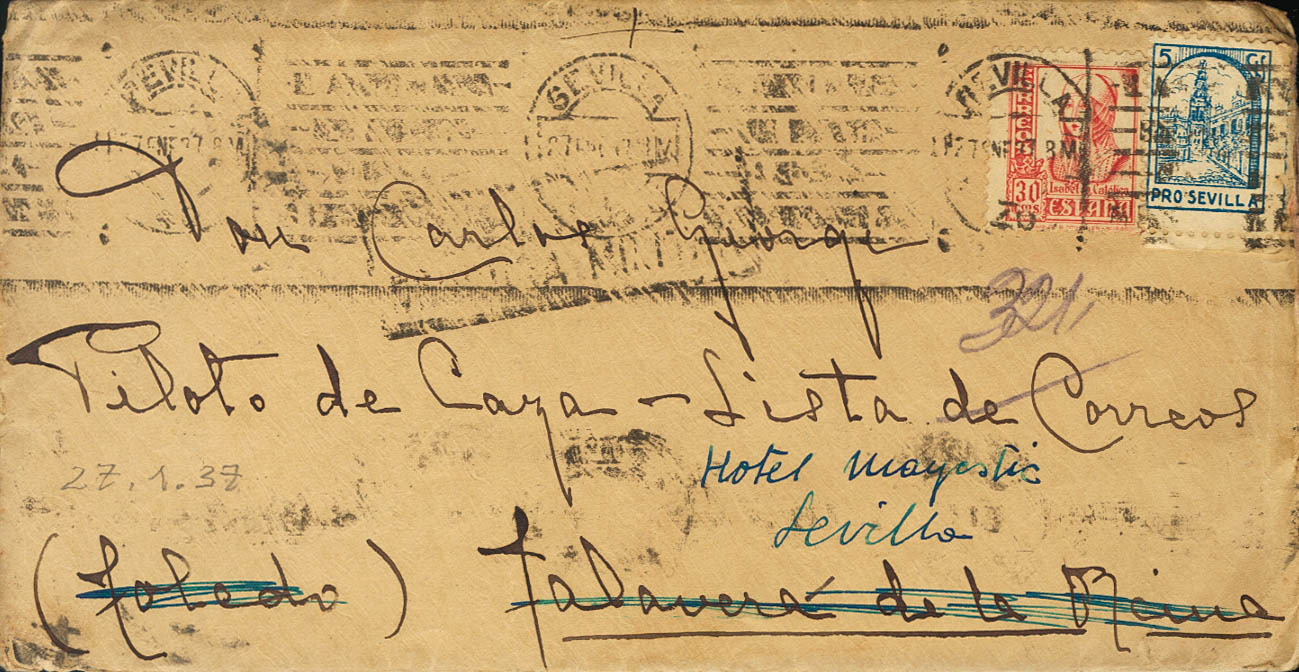 SEVILLA
27 ENE 37 8 M
SEVILLA
SEVILLA
27 ENE 37 8 M
CORREOS
30
CTS
Isabel la Católica
ESPAÑA
5 Ct
PRO SEVILLA
Don Carlos George.
321
Piloto de Caza - Lista de Correos
27.1.37
Hotel Mayestic
Sevilla
(Toledo) Talavera de la Reina